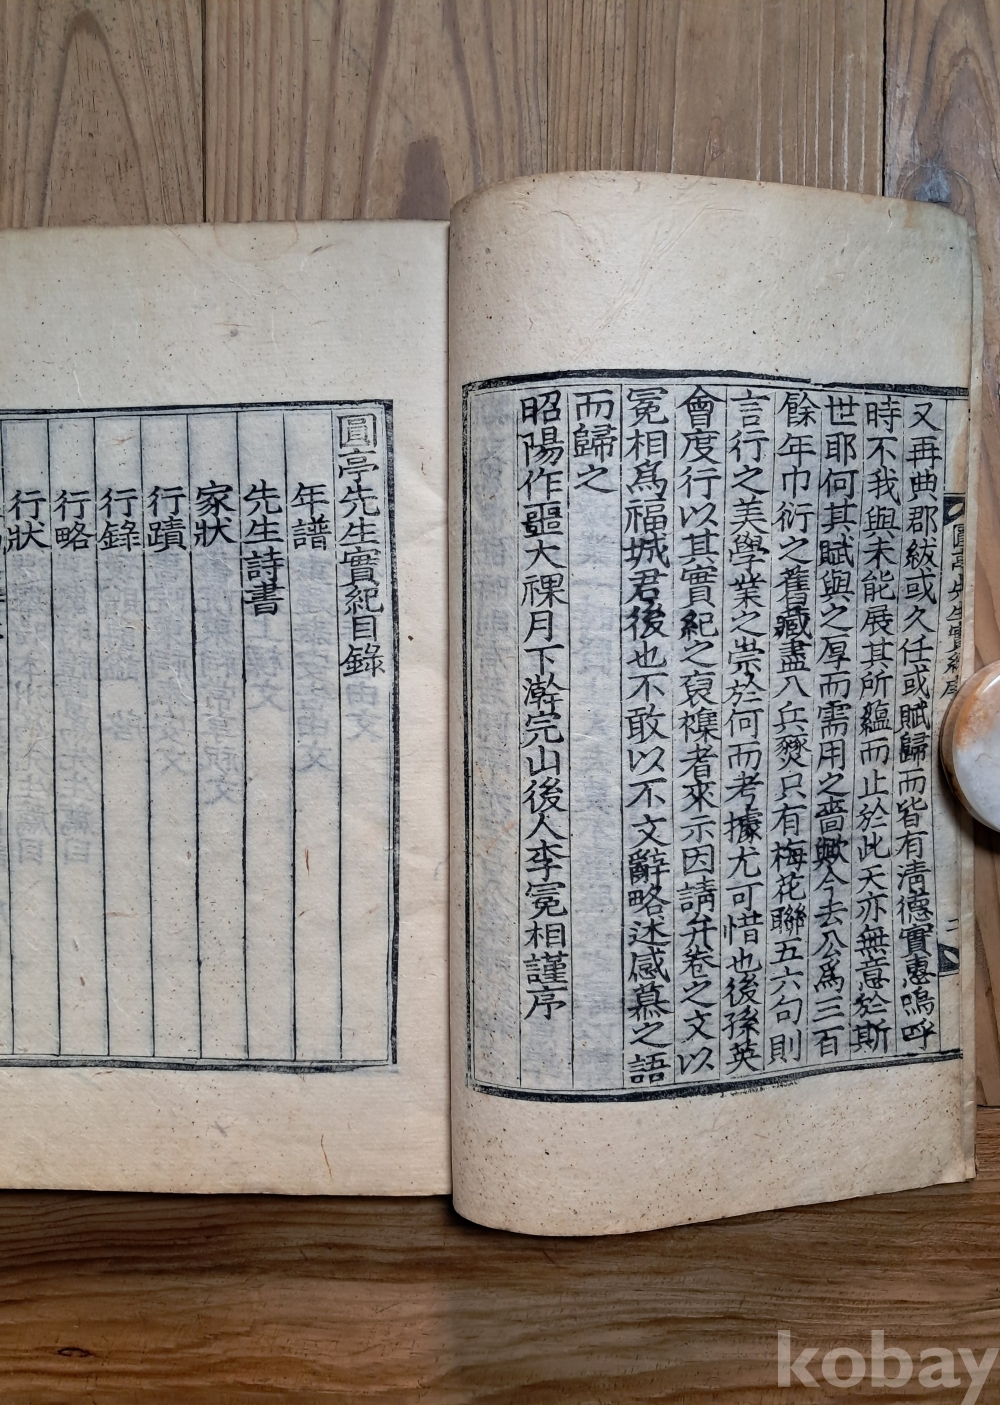 又再典郡紱或久任或賦歸而皆有淸德實惠嗚呼
時不我與未能展其所蘊而止於此天亦無意於斯
世耶何其賦與之厚而需用之嗇歟今去公爲三百
餘年巾衍之舊藏盡入兵燹只有梅花聯五六句則
言行之美學業之崇於何而考據尤可惜也後孫英
會度行以其實紀之裒襍者來示因請弁卷之文以
冕相爲福城君後也不敢以不文辭略述感慕之語
而歸之
昭陽作噩大祼月下澣完山後人李冕相謹序
圓亭先生實紀序
圓亭先生實紀目錄
年譜
先生詩書
家狀
行蹟
行錄
行略
行狀
kobay